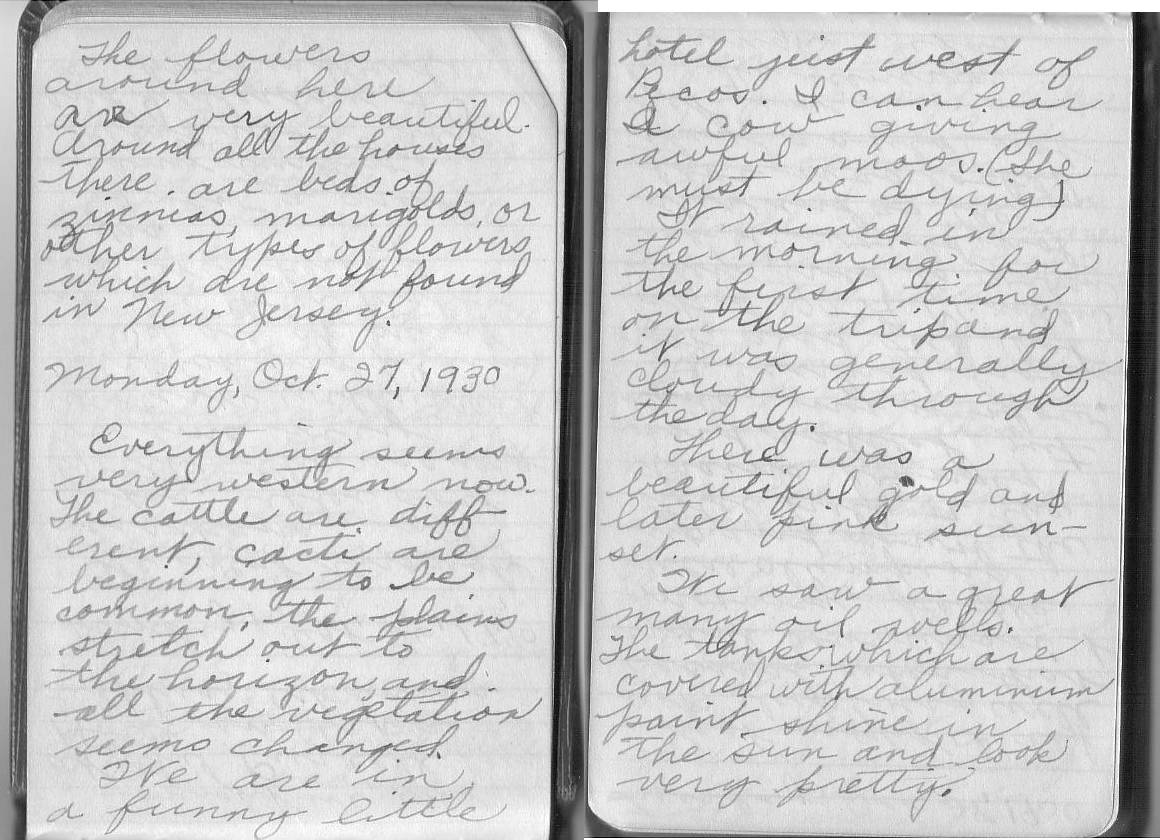 The flowers
around here
are very beautiful.
Around all the houses
there are beds of
zinnias, marigolds, or
other types of flowers
which are not found
in New Jersey.
Monday, Oct. 27, 1930
Everything seems
very western now.
The cattle are diff-
erent, cacti are
beginning to be
common, the plains
stretch out to
the horizon, and
all the vegetation
seems changed.
We are in
a funny little
hotel just west of
Pecos. I can hear
a cow giving
awful moos. (She
must be dying)
It rained in
the morning for
the first time
on the trip and
it was generally
cloudy through
the day.
There was a
beautiful gold and
later pink sun-
set.
We saw a great
many oil wells.
The tanks which are
covered with aluminium
paint shine in
the sun and look
very pretty.